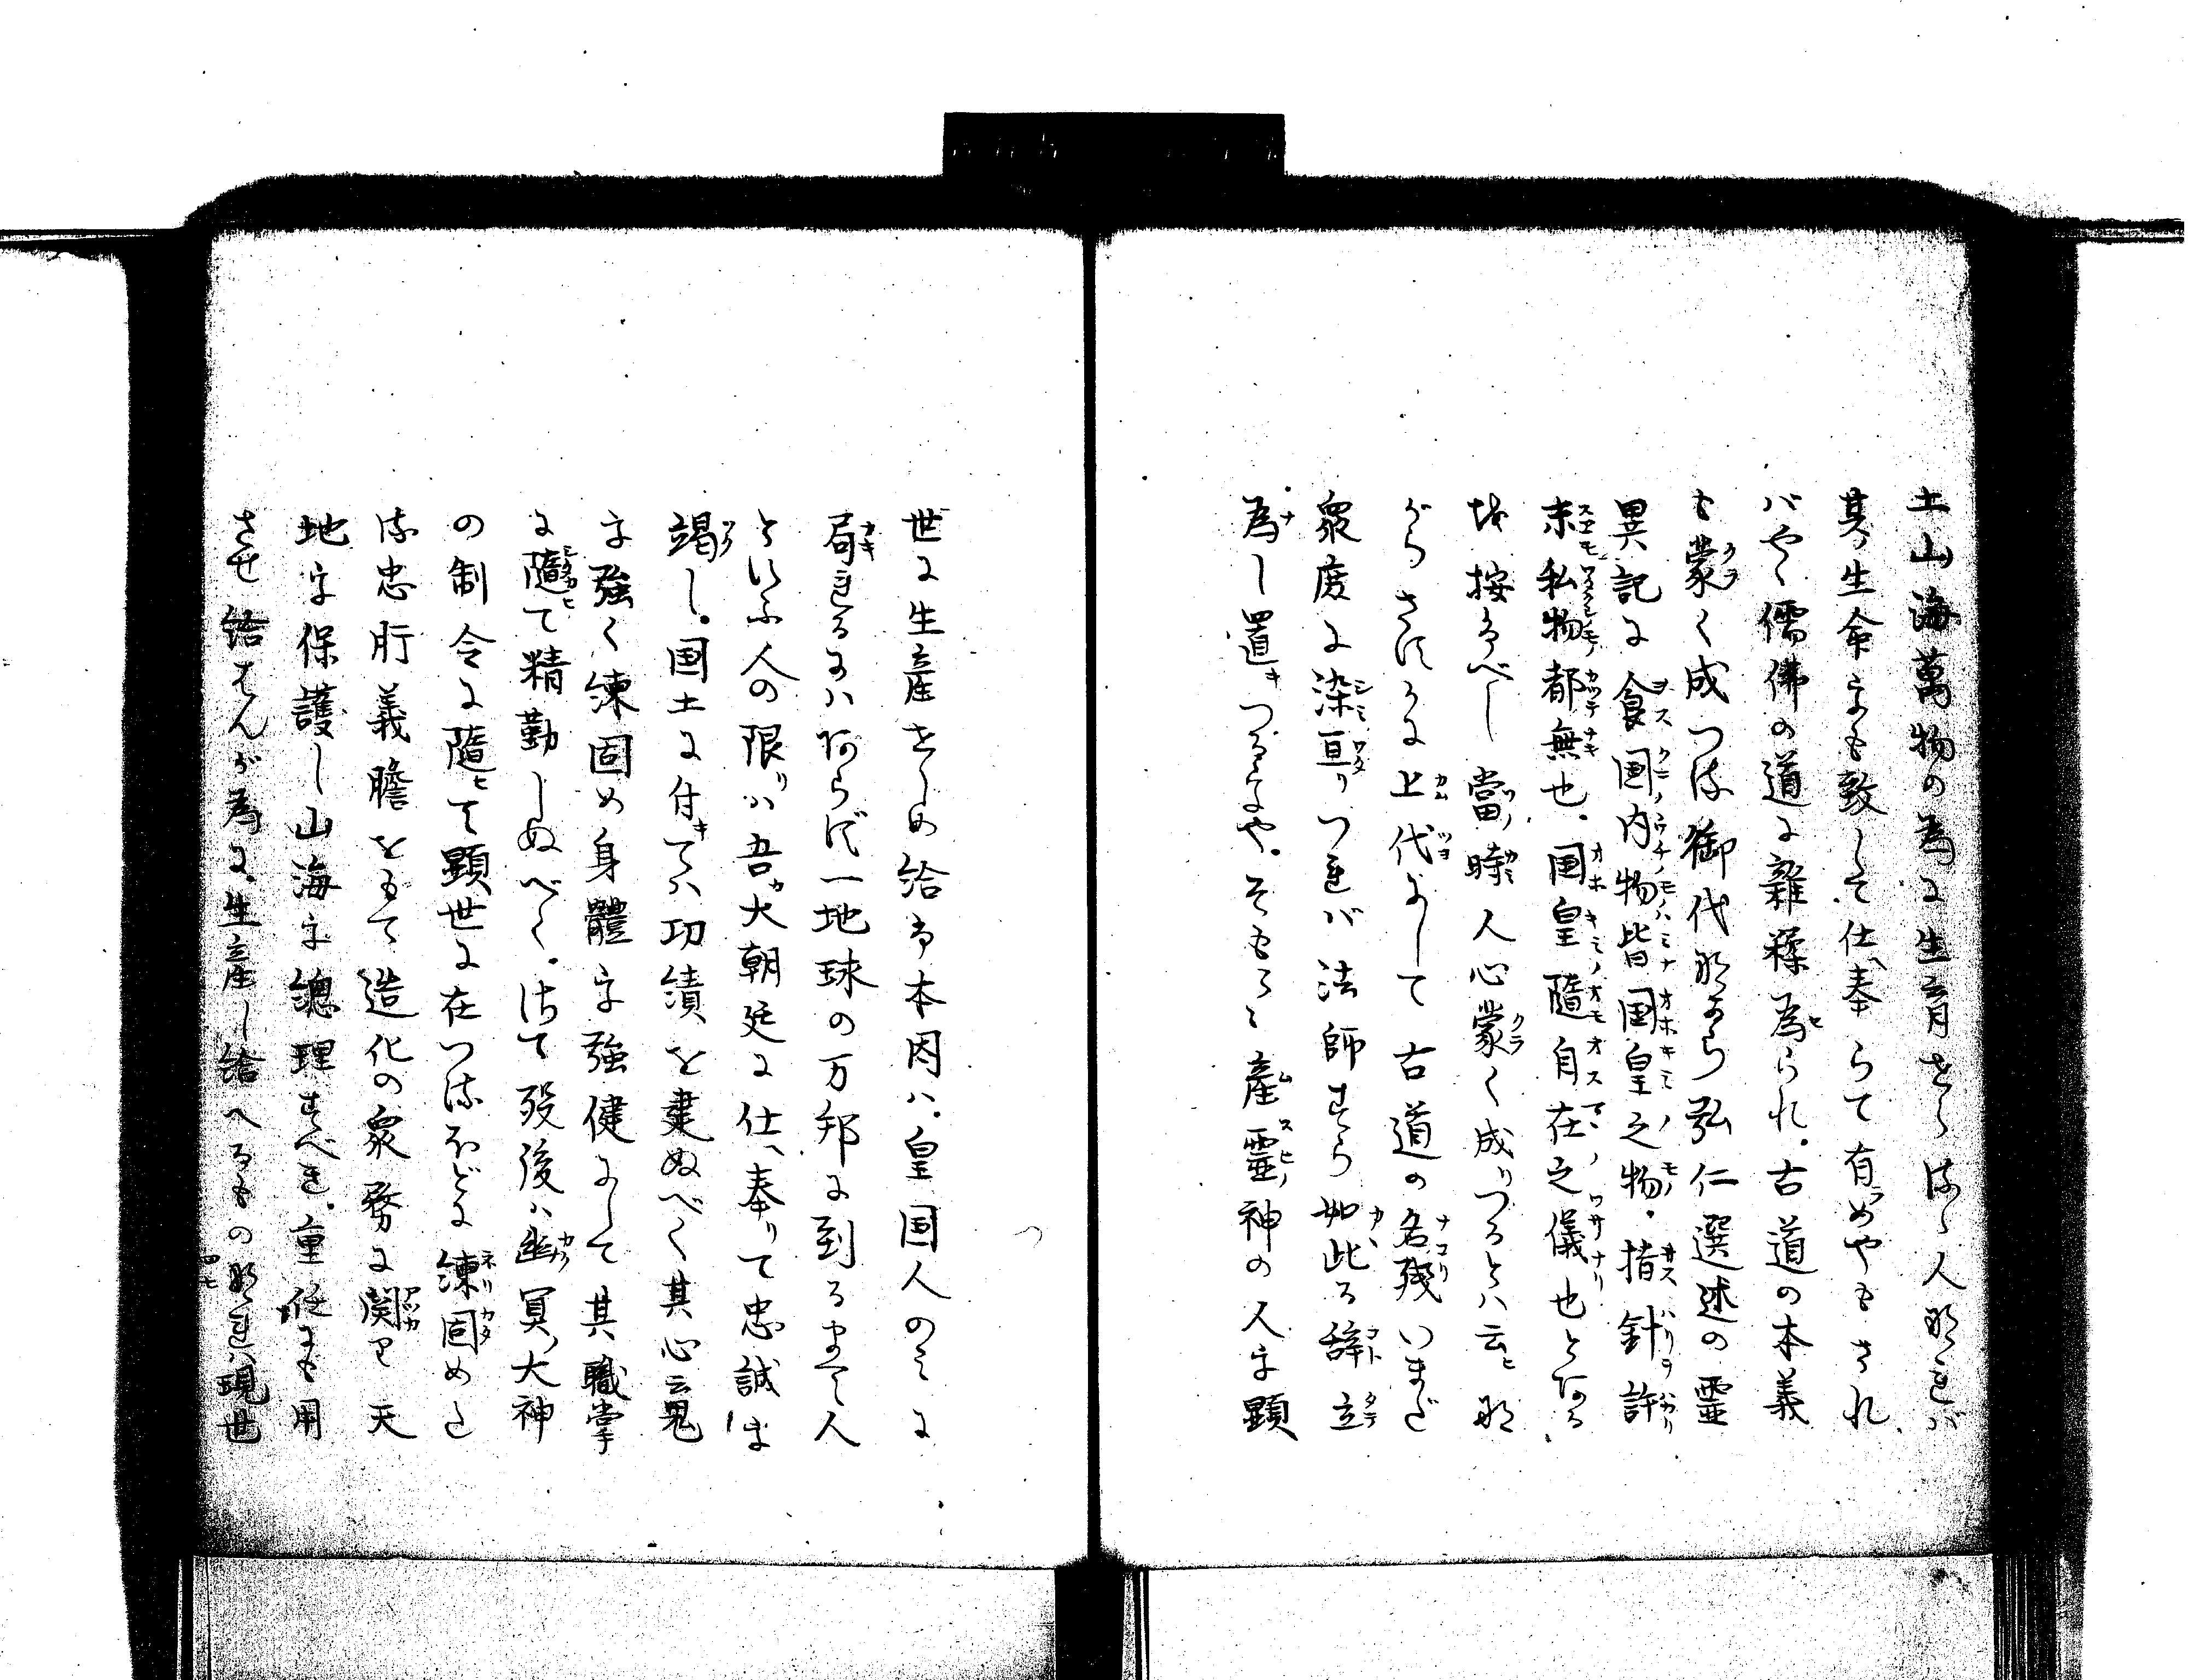 土山海萬物の為に生育せしける人なれば
其生命をも致して仕奉らで有めやもされ
ばやく儒佛の道に雜糅為られ。古道の本義
も蒙く成つる御代ながら弘仁選述の靈
異記に食国内物皆国皇之物。指針許
末私物都無也。国皇隨自在之儀也とある
を按ふべし當時人心蒙く成りつるとは云ヒな
がらさすがに上代にして古道の名殘いまだ
衆庶に染亘りつれば法師すら如此る辭立
為し置きつるをや。そも〳〵産靈神の人を顯
世に生産せしめ給ふ本因は。皇国人のみに
局れるにはあらず一地球の万邦に到るまで人
といふ人の限りは吾大朝廷に仕奉りて忠誠を
竭し。国土に付ては功績を建ぬべく其心云鬼
を強く練固め身體を強健にして其職掌
に隨て精勤しぬべく。はて歿後は幽冥大神
の制令に隨て顯世に在つるほどに練固めた
る忠肝義膽をもて造化の衆務に関り天
地を保護し山海を總理すべき。重任にも用
させ給はんが為に。生産し給へるものなれば現世